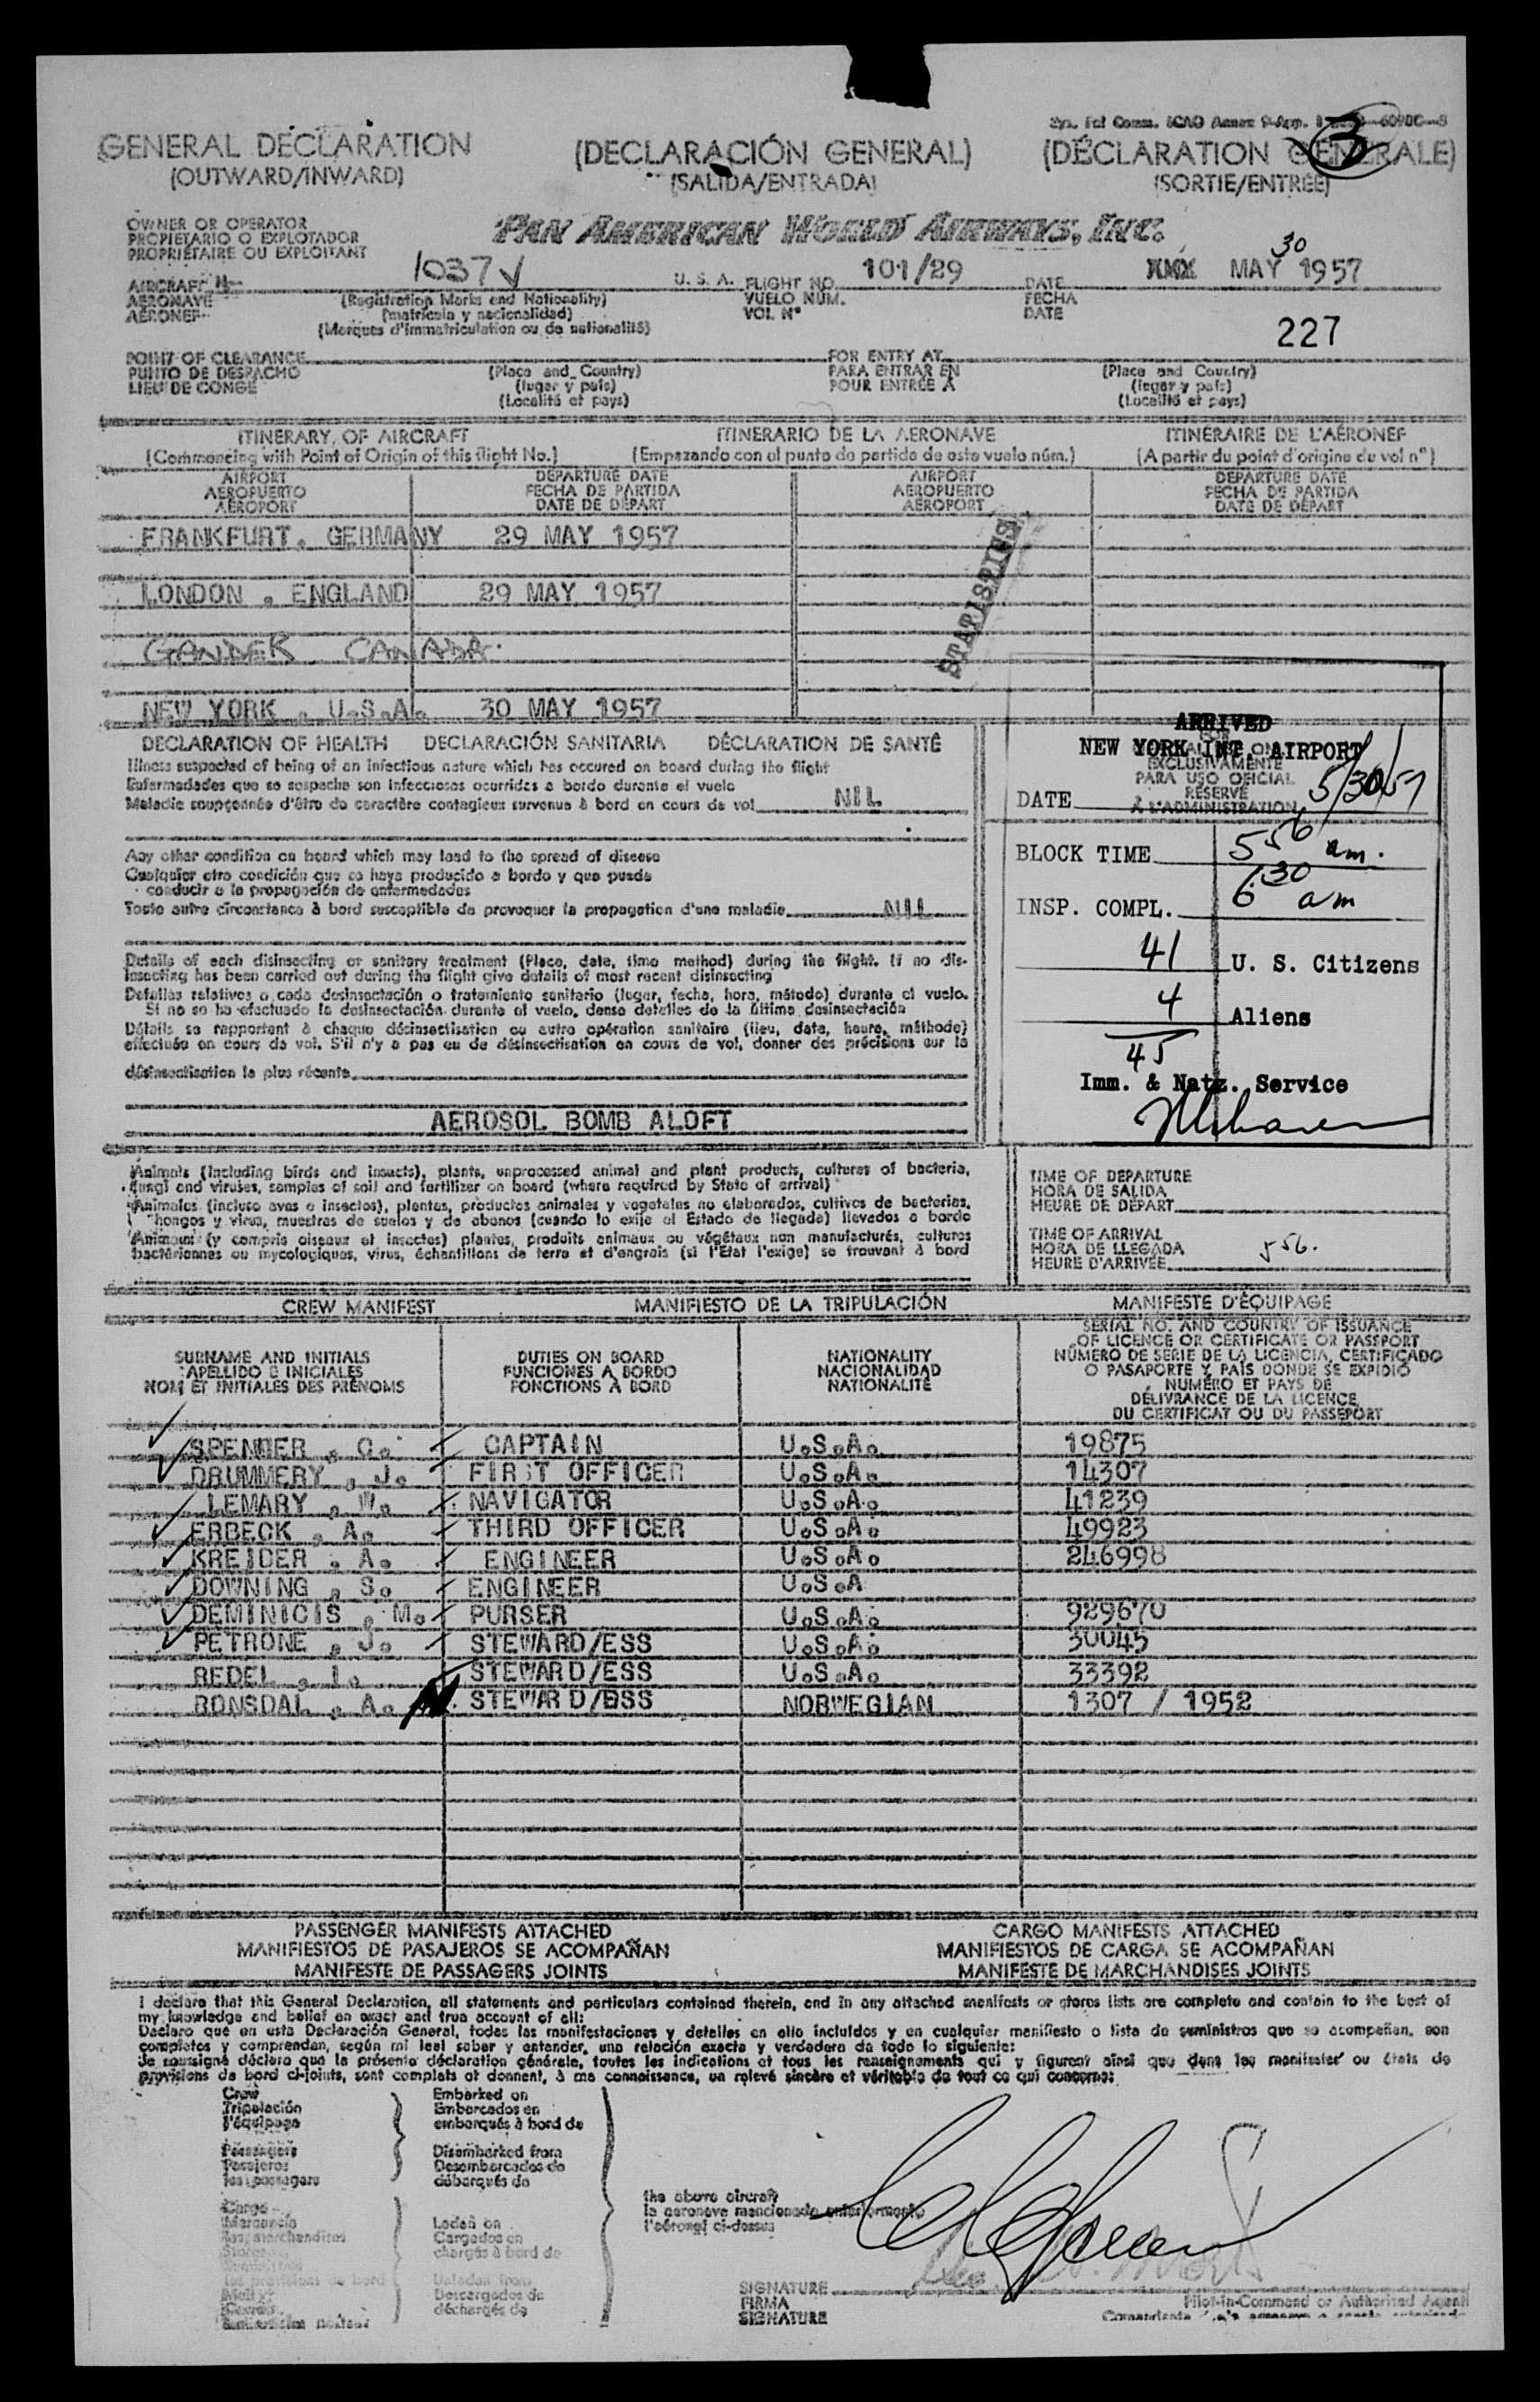 GENERAL DECLARATION
(OUTWARD/INWARD)
(DECLARACIÓN GENERAL)
(SALIDA/ENTRADA)
(DÉCLARATION GENERALE)
(SORTIE/ENTRÉE)
3
OWNER OR OPERATOR
PROPIETARIO O EXPLOTADOR
PROPRIÉTAIRE OU EXPLOITANT
PAN AMERICAN WORLD AIRWAYS, INC.
AIRCRAFT N- 1037V U. S. A. FLIGHT NO. 101/29 DATE 30 MAY 1957
AERONAVE
AÉRONEF
(Registration Marks and Nationality)
(matrícula y nacionalidad)
(Marques d'immatriculation ou de nationalité)
VUELO NÚM.
VOL N°
FECHA
DATE
227
POINT OF CLEARANCE
PUNTO DE DESPACHO
LIEU DE CONGÉ
(Place and Country)
(lugar y país)
(Localité et pays)
FOR ENTRY AT
PARA ENTRAR EN
POUR ENTRÉE À
(Place and Country)
(lugar y país)
(Localité et pays)
ITINERARY OF AIRCRAFT
(Commencing with Point of Origin of this flight No.)
ITINERARIO DE LA AERONAVE
(Empezando con el punto de partida de este vuelo núm.)
ITINÉRAIRE DE L'AÉRONEF
(A partir du point d'origine du vol n°)
AIRPORT
AEROPUERTO
AÉROPORT
DEPARTURE DATE
FECHA DE PARTIDA
DATE DE DÉPART
AIRPORT
AEROPUERTO
AÉROPORT
DEPARTURE DATE
FECHA DE PARTIDA
DATE DE DÉPART
FRANKFURT. GERMANY 29 MAY 1957
LONDON . ENGLAND 29 MAY 1957
GANDER CANADA.
NEW YORK . U.S.A. 30 MAY 1957
STATISTICS
DECLARATION OF HEALTH DECLARACIÓN SANITARIA DÉCLARATION DE SANTÉ
Illness suspected of being of an infectious nature which has occured on board during the flight
Enfermedades que se sospecha son infecciosas ocurridas a bordo durante el vuelo
Maladie soupçonnée d'être de caractère contagieux survenue à bord en cours de vol NIL
Any other condition on board which may lead to the spread of disease
Cualquier otra condición que se haya producido a bordo y que pueda
conducir a la propagación de enfermedades
Toute autre circonstance à bord susceptible de provoquer la propagation d'une maladie NIL
Details of each disinsecting or sanitary treatment (Place, date, time method) during the flight. If no dis-
insecting has been carried out during the flight give details of most recent disinsecting
Detalles relativos a cada desinsectación o tratamiento sanitario (lugar, fecha, hora, método) durante el vuelo.
Si no se ha efectuado la desinsectación durante el vuelo, dense detalles de la última desinsectación
Détails se rapportent à chaque désinsectisation ou autre opération sanitaire (lieu, date, heure, méthode)
effectuée en cours de vol. S'il n'y a pas eu de désinsectisation en cours de vol, donner des précisions sur la
désinsectisation la plus récente
AEROSOL BOMB ALOFT
ARRIVED
NEW YORK INT. AIRPORT
EXCLUSIVAMENTE
PARA USO OFICIAL
RÉSERVÉ
À L'ADMINISTRATION
DATE 5/30/57
BLOCK TIME 556 am.
INSP. COMPL. 630 am
41 U. S. Citizens
4 Aliens
45
Imm. & Natz. Service
Animals (including birds and insects), plants, unprocessed animal and plant products, cultures of bacteria,
fungi and viruses, samples of soil and fertilizer on board (where required by State of arrival)
Animales (incluso aves e insectos), plantas, productos animales y vegetales no elaborados, cultivos de bacterias,
hongos y virus, muestras de suelos y de abonos (cuando lo exija el Estado de llegada) llevados a bordo
Animaux (y compris oiseaux et insectes) plantes, produits animaux ou végétaux non manufacturés, cultures
bactériennes ou mycologiques, virus, échantillons de terre et d'engrais (si l'Etat l'exige) se trouvant à bord
TIME OF DEPARTURE
HORA DE SALIDA
HEURE DE DÉPART
TIME OF ARRIVAL
HORA DE LLEGADA
HEURE D'ARRIVÉE 556.
CREW MANIFEST MANIFIESTO DE LA TRIPULACIÓN MANIFESTE D'ÉQUIPAGE
SURNAME AND INITIALS
APELLIDO E INICIALES
NOM ET INITIALES DES PRÉNOMS
DUTIES ON BOARD
FUNCIONES A BORDO
FONCTIONS À BORD
NATIONALITY
NACIONALIDAD
NATIONALITÉ
SERIAL NO. AND COUNTRY OF ISSUANCE
OF LICENCE OR CERTIFICATE OR PASSPORT
NÚMERO DE SERIE DE LA LICENCIA, CERTIFICADO
O PASAPORTE Y PAÍS DONDE SE EXPIDIÓ
NUMÉRO ET PAYS DE
DÉLIVRANCE DE LA LICENCE,
DU CERTIFICAT OU DU PASSEPORT
SPENCER , C. CAPTAIN U.S.A. 19875
DRUMMERY , J. FIRST OFFICER U.S.A. 14307
LEMARY , W. NAVIGATOR U.S.A. 41239
ERBECK , A. THIRD OFFICER U.S.A. 49923
KREIDER . A. ENGINEER U.S.A. 246998
DOWNING , S. ENGINEER U.S.A
DEMINICIS , M. PURSER U.S.A. 929670
PETRONE , J. STEWARD/ESS U.S.A. 30045
REDEL , I. STEWARD/ESS U.S.A. 33392
RONSDAL , A. STEWARD/ESS NORWEGIAN 1307 / 1952
PASSENGER MANIFESTS ATTACHED
MANIFIESTOS DE PASAJEROS SE ACOMPAÑAN
MANIFESTE DE PASSAGERS JOINTS
CARGO MANIFESTS ATTACHED
MANIFIESTOS DE CARGA SE ACOMPAÑAN
MANIFESTE DE MARCHANDISES JOINTS
I declare that this General Declaration, all statements and particulars contained therein, and in any attached manifests or stores lists are complete and contain to the best of
my knowledge and belief an exact and true account of all:
Declaro que en esta Declaración General, todas las manifestaciones y detalles en ella incluídos y en cualquier manifiesto o lista de suministros que se acompañan, son
completos y comprenden, según mi leal saber y entender, una relación exacta y verdadera de todo lo siguiente:
Je soussigné déclare que la présente déclaration générale, toutes les indications et tous les renseignements qui y figurent ainsi que dans les manifestes ou états de
provisions de bord ci-joints, sont complets et donnent, à ma connaissance, un relevé sincère et véritable de tout ce qui concerne:
Crew
Tripulación
l'équipage
Passengers
Pasajeros
les passagers
Cargo
Mercancía
les marchandises
Embarked on
Embarcados en
embarqués à bord de
Disembarked from
Desembarcados de
débarqués de
Loaded on
Cargados en
chargés à bord de
Unladen from
Descargados de
déchargés de
the above aircraft
la aeronave mencionada anteriormente
l'aéronef ci-dessus
SIGNATURE
FIRMA
SIGNATURE
Pilot-in-Command or Authorized Agent